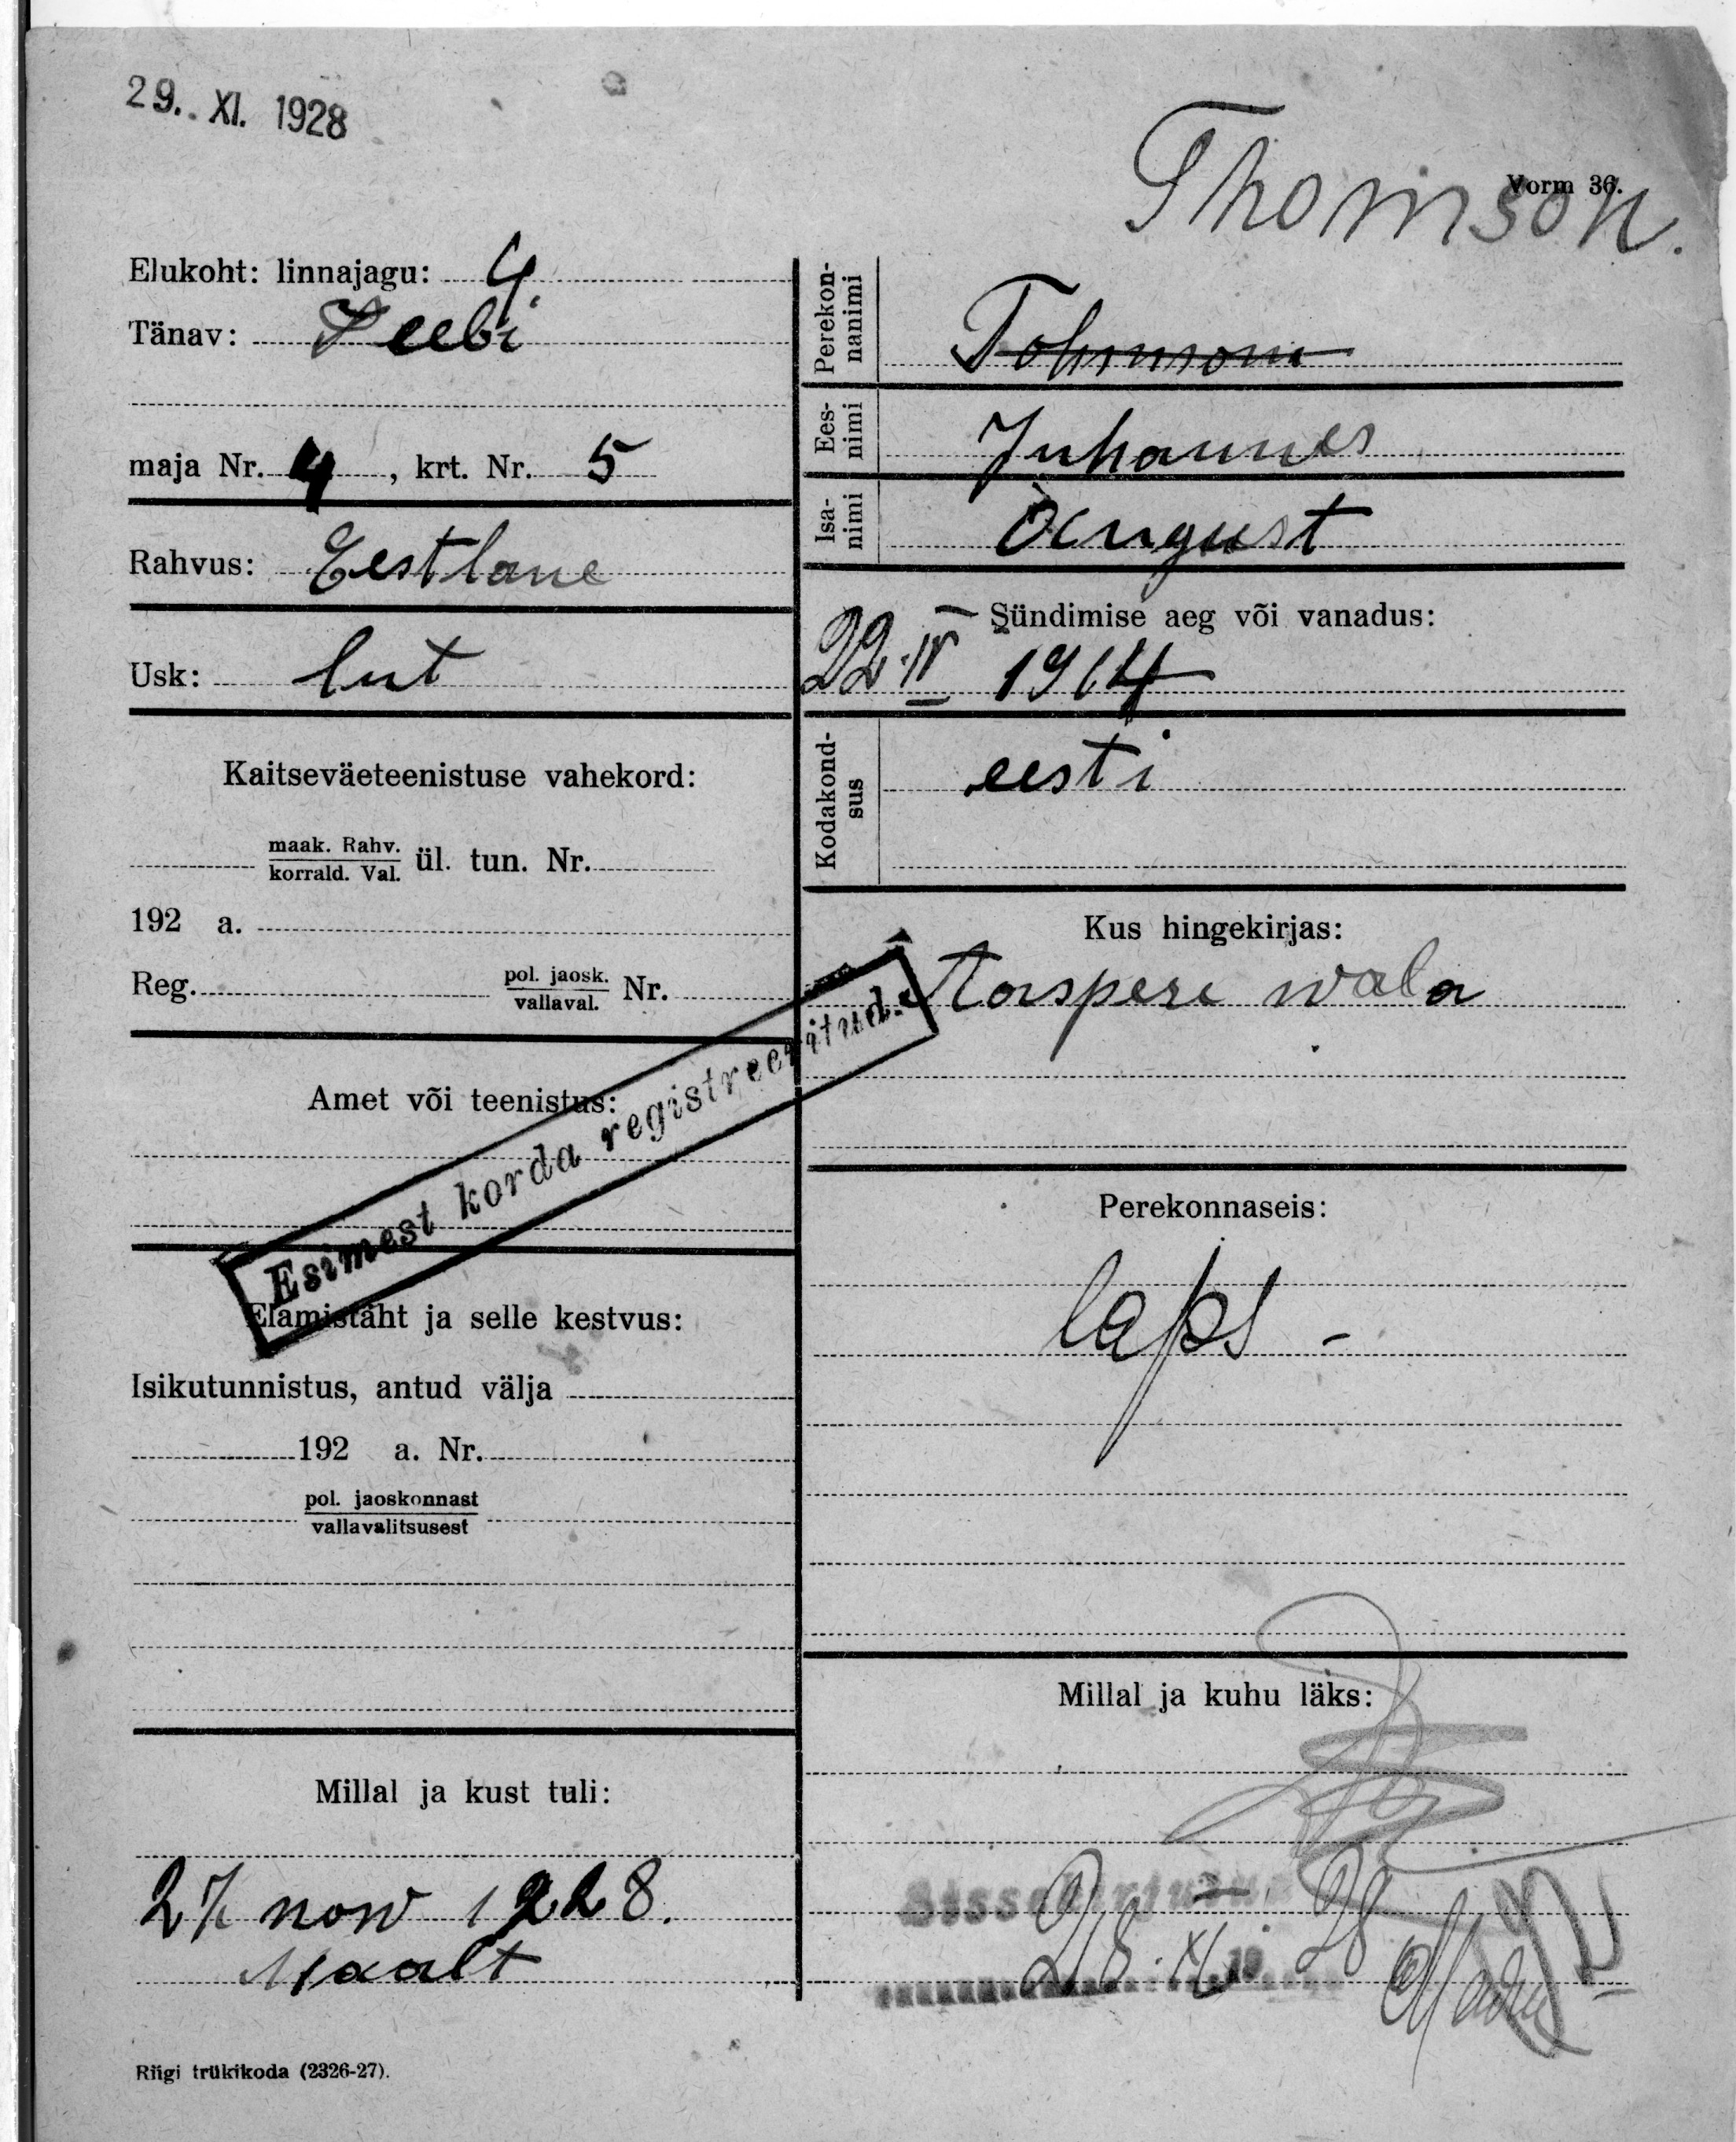 29. XI. 1928
Vorm 36.
Thomson.
Elukoht: linnajagu: 4
Tänav: Seebi
maja Nr. 4, krt. Nr. 5
Rahvus: Eestlane
Usk: lut
Kaitseväeteenistuse vahekord:
maak. Rahv.
korrald. Val. ül. tun. Nr.
192 a.
Reg. pol. jaosk.
vallaval. Nr.
Amet või teenistus:
Esimest korda registreeritud.
Elamistäht ja selle kestvus:
Isikutunnistus, antud välja
192 a. Nr.
pol. jaoskonnast
vallavalitsusest
Millal ja kust tuli:
27 now 1928.
Maalt
Riigi trükikoda (2326-27).
Perekon-
nanimi
Tohmson
Ees-
nimi Juhannes
Isa-
nimi August
Sündimise aeg või vanadus:
22. IV 1914
Kodakond-
sus eesti
Kus hingekirjas:
Aaspere wala
Perekonnaseis:
laps -
Millal ja kuhu läks:
28. XI 19 28